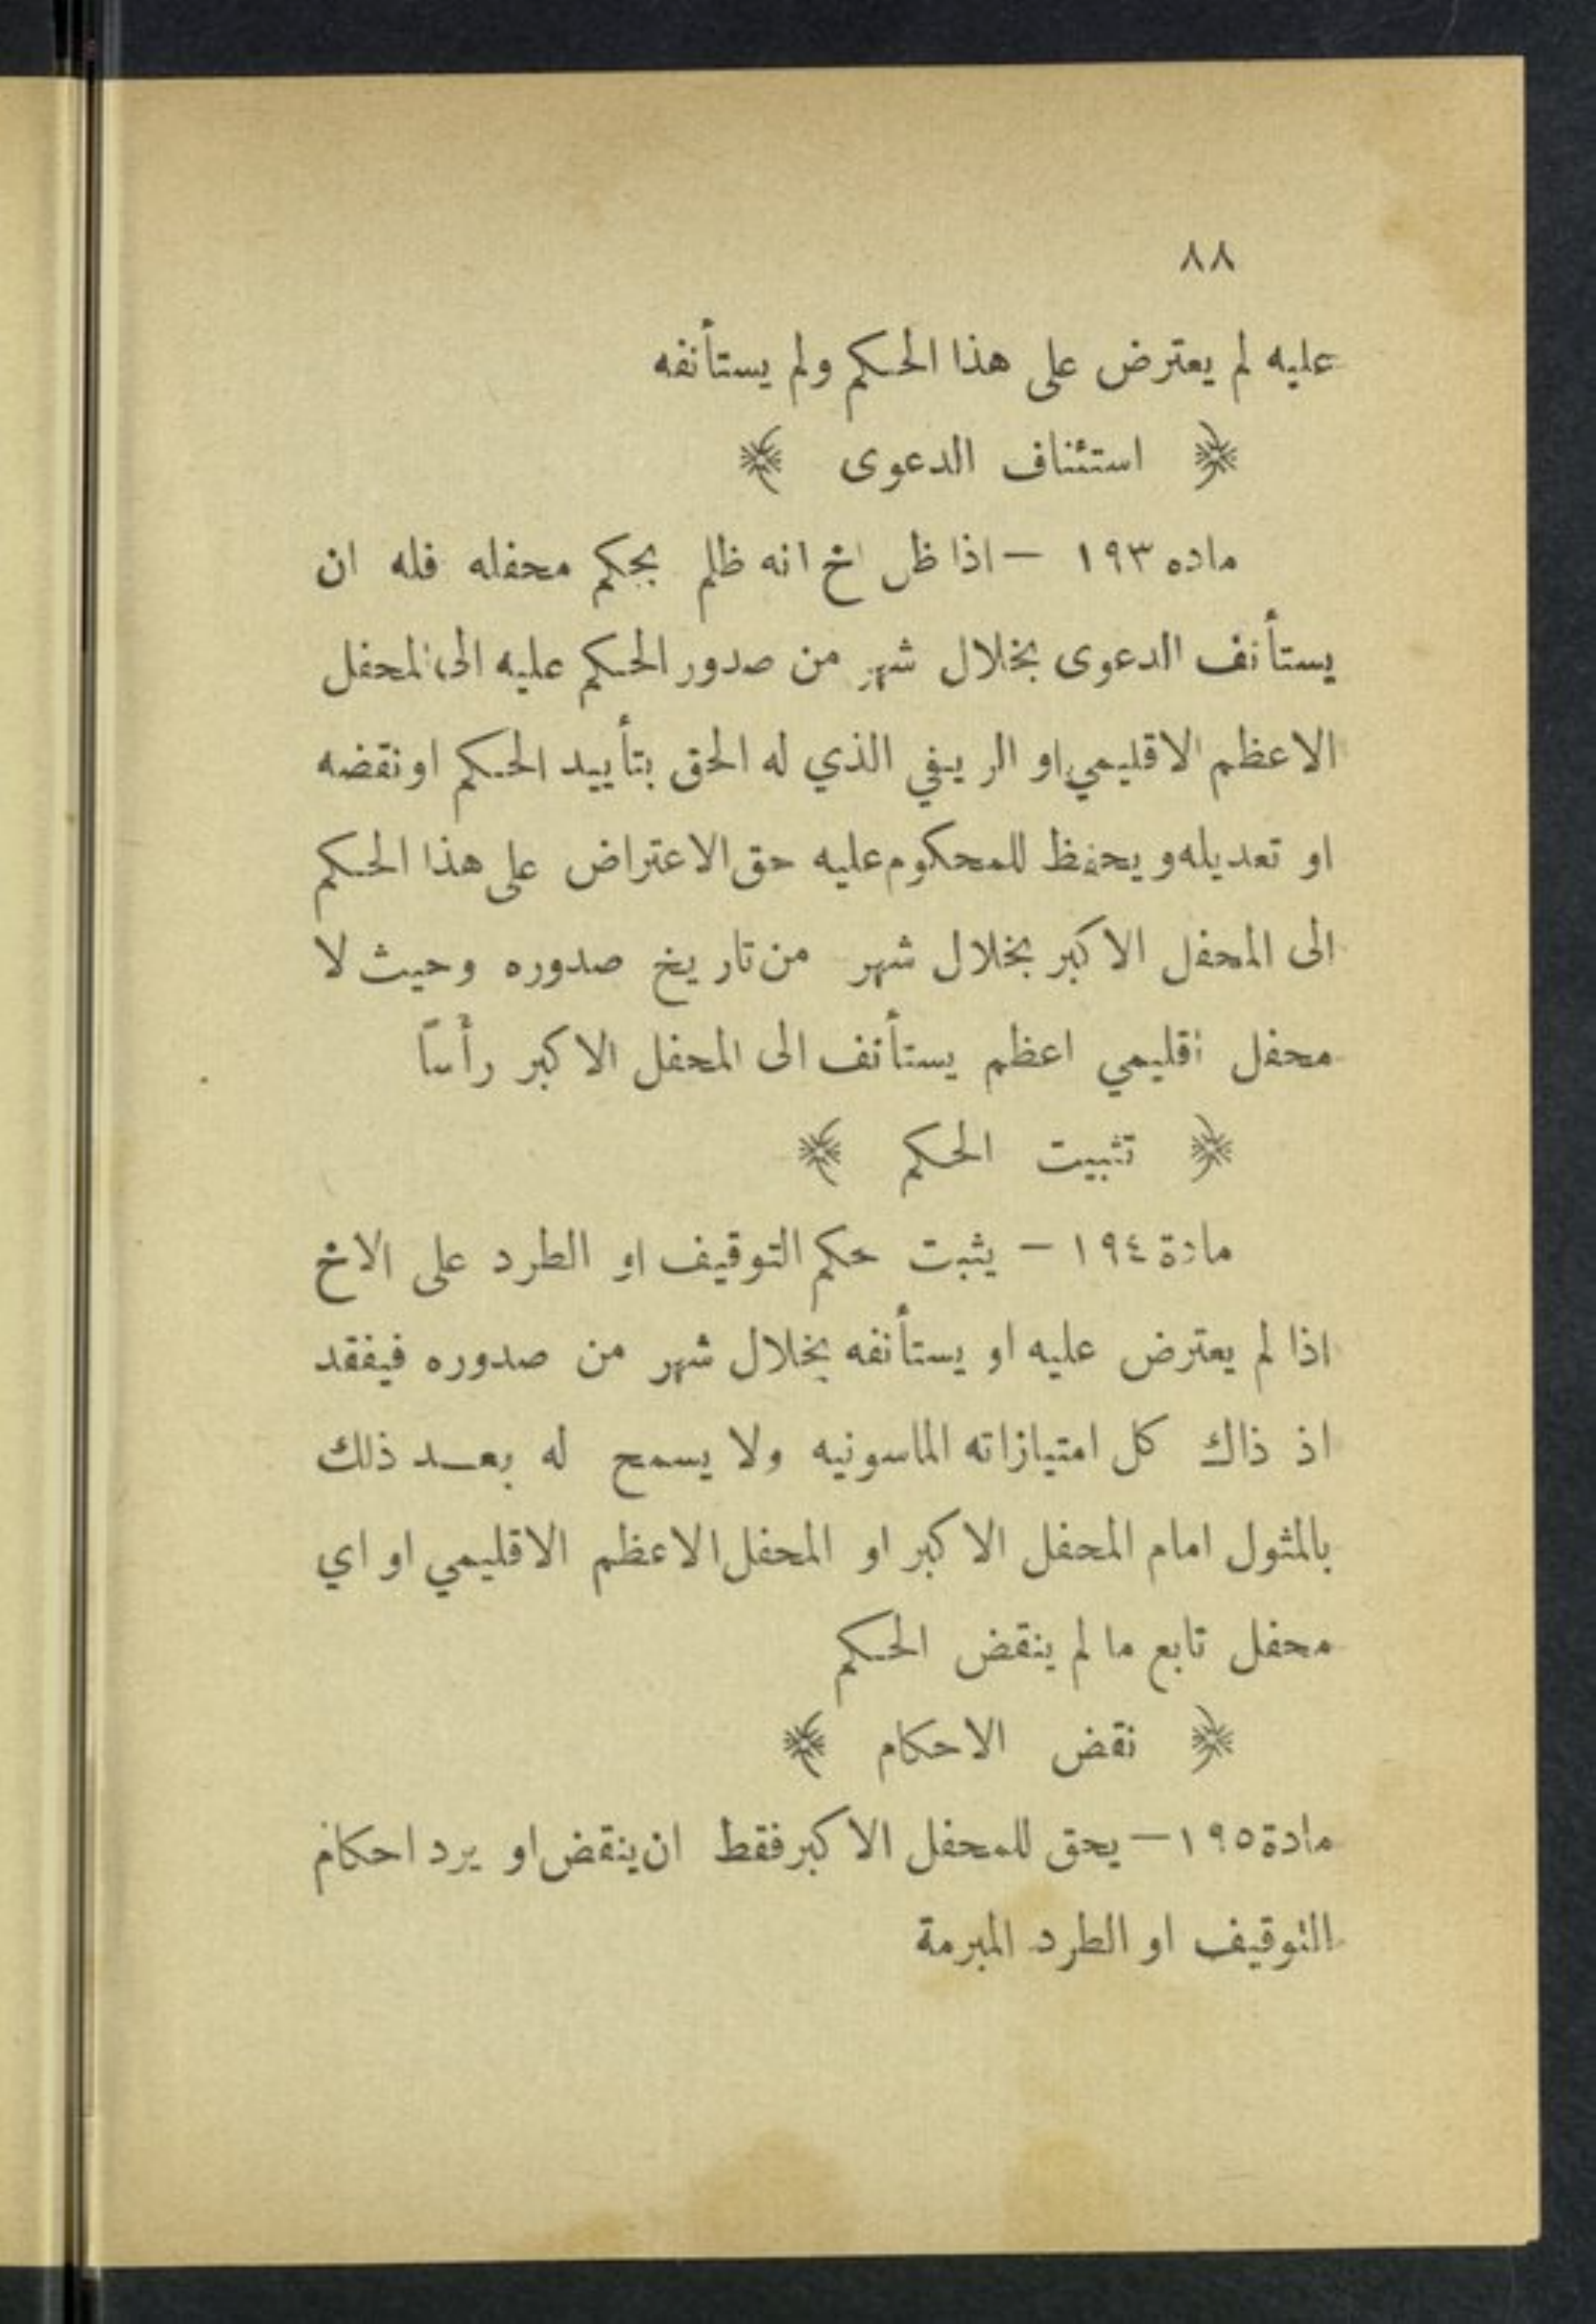 ٨٨
عليه لم يعترض على هذا الحكم ولم يستأنفه
﴿ استئناف الدعوى ﴾
ماده ١٩٣ – اذا ظل اخ انه ظلم بجكم محفله فله ان
يستأنف الدعوى بخلال شهر من صدور الحكم عليه الى المحفل
الاعظم الاقليمي او الريفي الذي له الحق بتأييد الحكم او نقضه
او تعديله ويحفظ للمحكوم عليه حق الاعتراض على هذا الحكم
الى المحفل الاكبر بخلال شهر من تاريخ صدوره وحيث لا
محفل اقليمي اعظم يستأنف الى المحفل الاكبر رأساً
﴿ تثبيت الحكم ﴾
مادة ١٩٤ – يثبت حكم التوقيف او الطرد على الاخ
اذا لم يعترض عليه او يستأنفه بخلال شهر من صدوره فيفقد
اذ ذاك كل امتيازاته الماسونيه ولا يسمح له بعد ذلك
بالمثول امام المحفل الاكبر او المحفل الاعظم الاقليمي او اي
محفل تابع ما لم ينقض الحكم
﴿ نقض الاحكام ﴾
مادة ١٩٥ – يحق للمحفل الاكبر فقط ان ينقض او يرد احكام
التوقيف او الطرد المبرمة